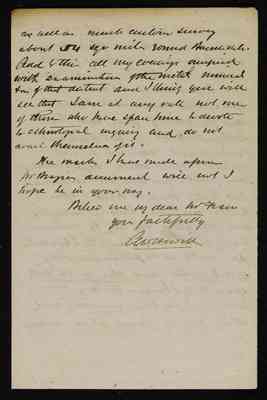 as well as much custom survey
about 84 sqr miles round
Add to this all my evenings occupied
with examination of the
of that district and I think you will
see that I am at any rate not one
of those who have spare time to devote
to ethnological inquiry and do not
avail themselves of it.
The marks I have made upon
Mr document will not I
hope be in your way.
Believe me my dear Mr
yours faithfully